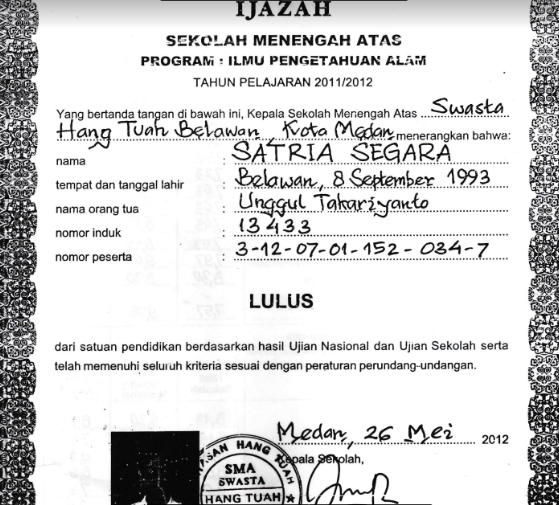 IJAZAH
SEKOLAH MENENGAH ATAS
PROGRAM : ILMU PENGETAHUAN ALAM
TAHUN PELAJARAN 2011/2012
Yang bertanda tangan di bawah ini, Kepala Sekolah Menengah Atas Swasta
Hang Tuah Belawan, Kota Medan menerangkan bahwa:
nama : SATRIA SEGARA
tempat dan tanggal lahir : Belawan, 8 September 1993
nama orang tua : Unggul Takariyanto
nomor induk : 13433
nomor peserta : 3-12-07-01-152-034-7
LULUS
dari satuan pendidikan berdasarkan hasil Ujian Nasional dan Ujian Sekolah serta
telah memenuhi seluruh kriteria sesuai dengan peraturan perundang-undangan.
Medan, 26 Mei 2012
Kepala Sekolah,
HANG TUAH
SMA
SWASTA
HANG TUAH